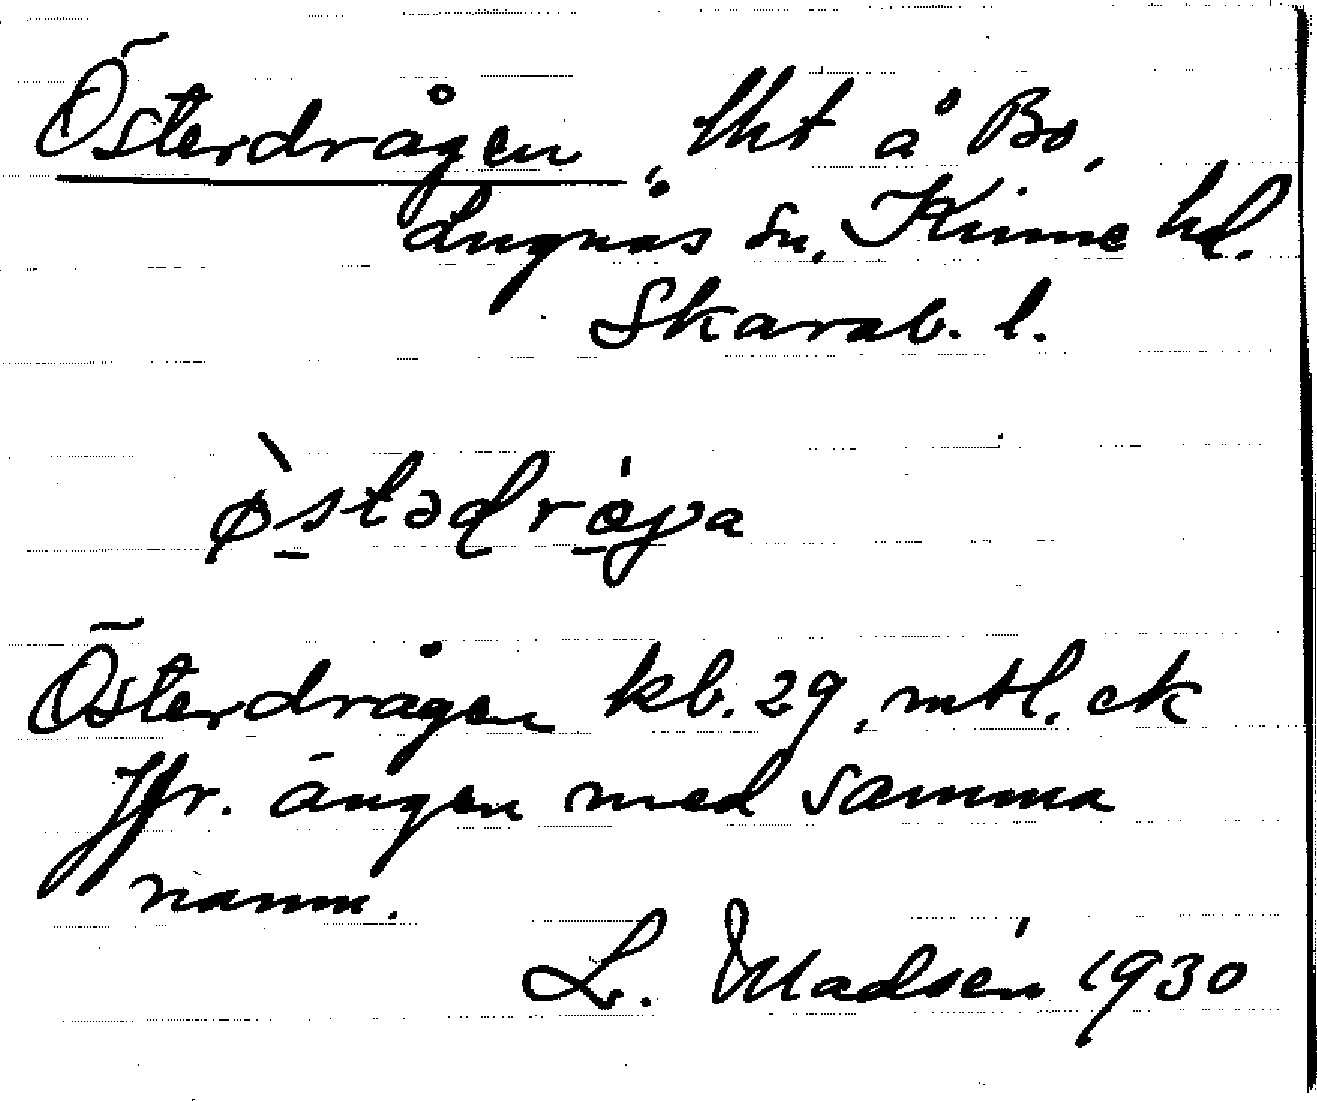 Österdrågen, lht å Bo,
Lugnås sn, Kinne hd.
Skarab. l.
ø̀stədrǫ́ga
Österdrågen kb. 29, mtl. ek
Jfr. ängen med samma
namn.
L. Madsén 1930